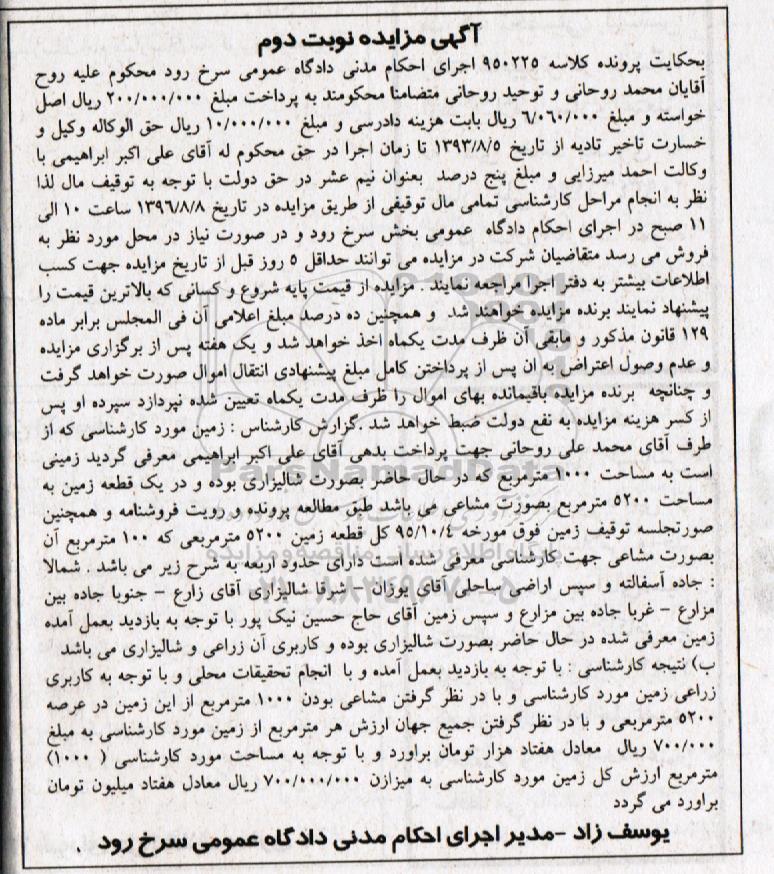 آگهی مزایده نوبت دوم
بحکایت پرونده کلاسه ۹۵۰۲۲۵ اجرای احکام مدنی دادگاه عمومی سرخ رود محکوم علیه روح
آقایان محمد روحانی و توحید روحانی متضامنا محکومند به پرداخت مبلغ ۲۰۰/۰۰۰/۰۰۰ ریال اصل
خواسته و مبلغ ۶/۰۶۰/۰۰۰ ریال بابت هزینه دادرسی و مبلغ ۱۰/۰۰۰/۰۰۰ ریال حق الوکاله وکیل و
خسارت تاخیر تادیه از تاریخ ۱۳۹۳/۸/۵ تا زمان اجرا در حق محکوم له آقای علی اکبر ابراهیمی با
وکالت احمد میرزایی و مبلغ پنج درصد بعنوان نیم عشر در حق دولت با توجه به توقیف مال لذا
نظر به انجام مراحل کارشناسی تمامی مال توقیفی از طریق مزایده در تاریخ ۱۳۹۶/۸/۸ ساعت ۱۰ الی
۱۱ صبح در اجرای احکام دادگاه عمومی بخش سرخ رود و در صورت نیاز در محل مورد نظر به
فروش می رسد متقاضیان شرکت در مزایده می توانند حداقل ۵ روز قبل از تاریخ مزایده جهت کسب
اطلاعات بیشتر به دفتر اجرا مراجعه نمایند . مزایده از قیمت پایه شروع و کسانی که بالاترین قیمت را
پیشنهاد نمایند برنده مزایده خواهند شد و همچنین ده درصد مبلغ اعلامی آن فی المجلس برابر ماده
۱۲۹ قانون مذکور و مابقی آن ظرف مدت یکماه اخذ خواهد شد و یک هفته پس از برگزاری مزایده
و عدم وصول اعتراض به ان پس از پرداختن کامل مبلغ پیشنهادی انتقال اموال صورت خواهد گرفت
و چنانچه برنده مزایده باقیمانده بهای اموال را ظرف مدت یکماه تعیین شده نپردازد سپرده او پس
از کسر هزینه مزایده به نفع دولت ضبط خواهد شد .گزارش کارشناس : زمین مورد کارشناسی که از
طرف آقای محمد علی روحانی جهت پرداخت بدهی آقای علی اکبر ابراهیمی معرفی گردید زمینی
است به مساحت ۱۰۰۰ مترمربع که در حال حاضر بصورت شالیزاری بوده و در یک قطعه زمین به
مساحت ۵۲۰۰ مترمربع بصورت مشاعی می باشد طبق مطالعه پرونده و رویت فروشنامه و همچنین
صورتجلسه توقیف زمین فوق مورخه ۹۵/۱۰/۴ کل قطعه زمین ۵۲۰۰ مترمربعی که ۱۰۰ مترمربع آن
بصورت مشاعی جهت کارشناسی معرفی شده است دارای حدود اربعه به شرح زیر می باشد . شمالا
: جاده آسفالته و سپس اراضی ساحلی آقای یوزان – شرقا شالیزاری آقای زارع – جنوبا جاده بین
مزارع – غربا جاده بین مزارع و سپس زمین آقای حاج حسین نیک پور با توجه به بازدید بعمل آمده
زمین معرفی شده در حال حاضر بصورت شالیزاری بوده و کاربری آن زراعی و شالیزاری می باشد
ب) نتیجه کارشناسی : با توجه به بازدید بعمل آمده و با انجام تحقیقات محلی و با توجه به کاربری
زراعی زمین مورد کارشناسی و با در نظر گرفتن مشاعی بودن ۱۰۰۰ مترمربع از این زمین در عرصه
۵۲۰۰ مترمربعی و با در نظر گرفتن جمیع جهان ارزش هر مترمربع از زمین مورد کارشناسی به مبلغ
۷۰۰/۰۰۰ ریال معادل هفتاد هزار تومان براورد و با توجه به مساحت مورد کارشناسی ( ۱۰۰۰)
مترمربع ارزش کل زمین مورد کارشناسی به میزازن ۷۰۰/۰۰۰/۰۰۰ ریال معادل هفتاد میلیون تومان
براورد می گردد
یوسف زاد –مدیر اجرای احکام مدنی دادگاه عمومی سرخ رود .
ParsNamadData
پایگاه اطلاع رسانی مناقصه و مزایده